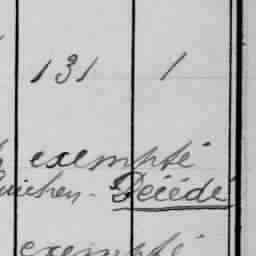 131 1
exempté
Guichen - Décédé
exempté